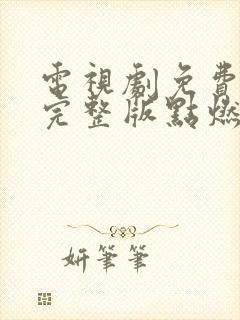 電視劇免費
完整版點燃
妍筆筆